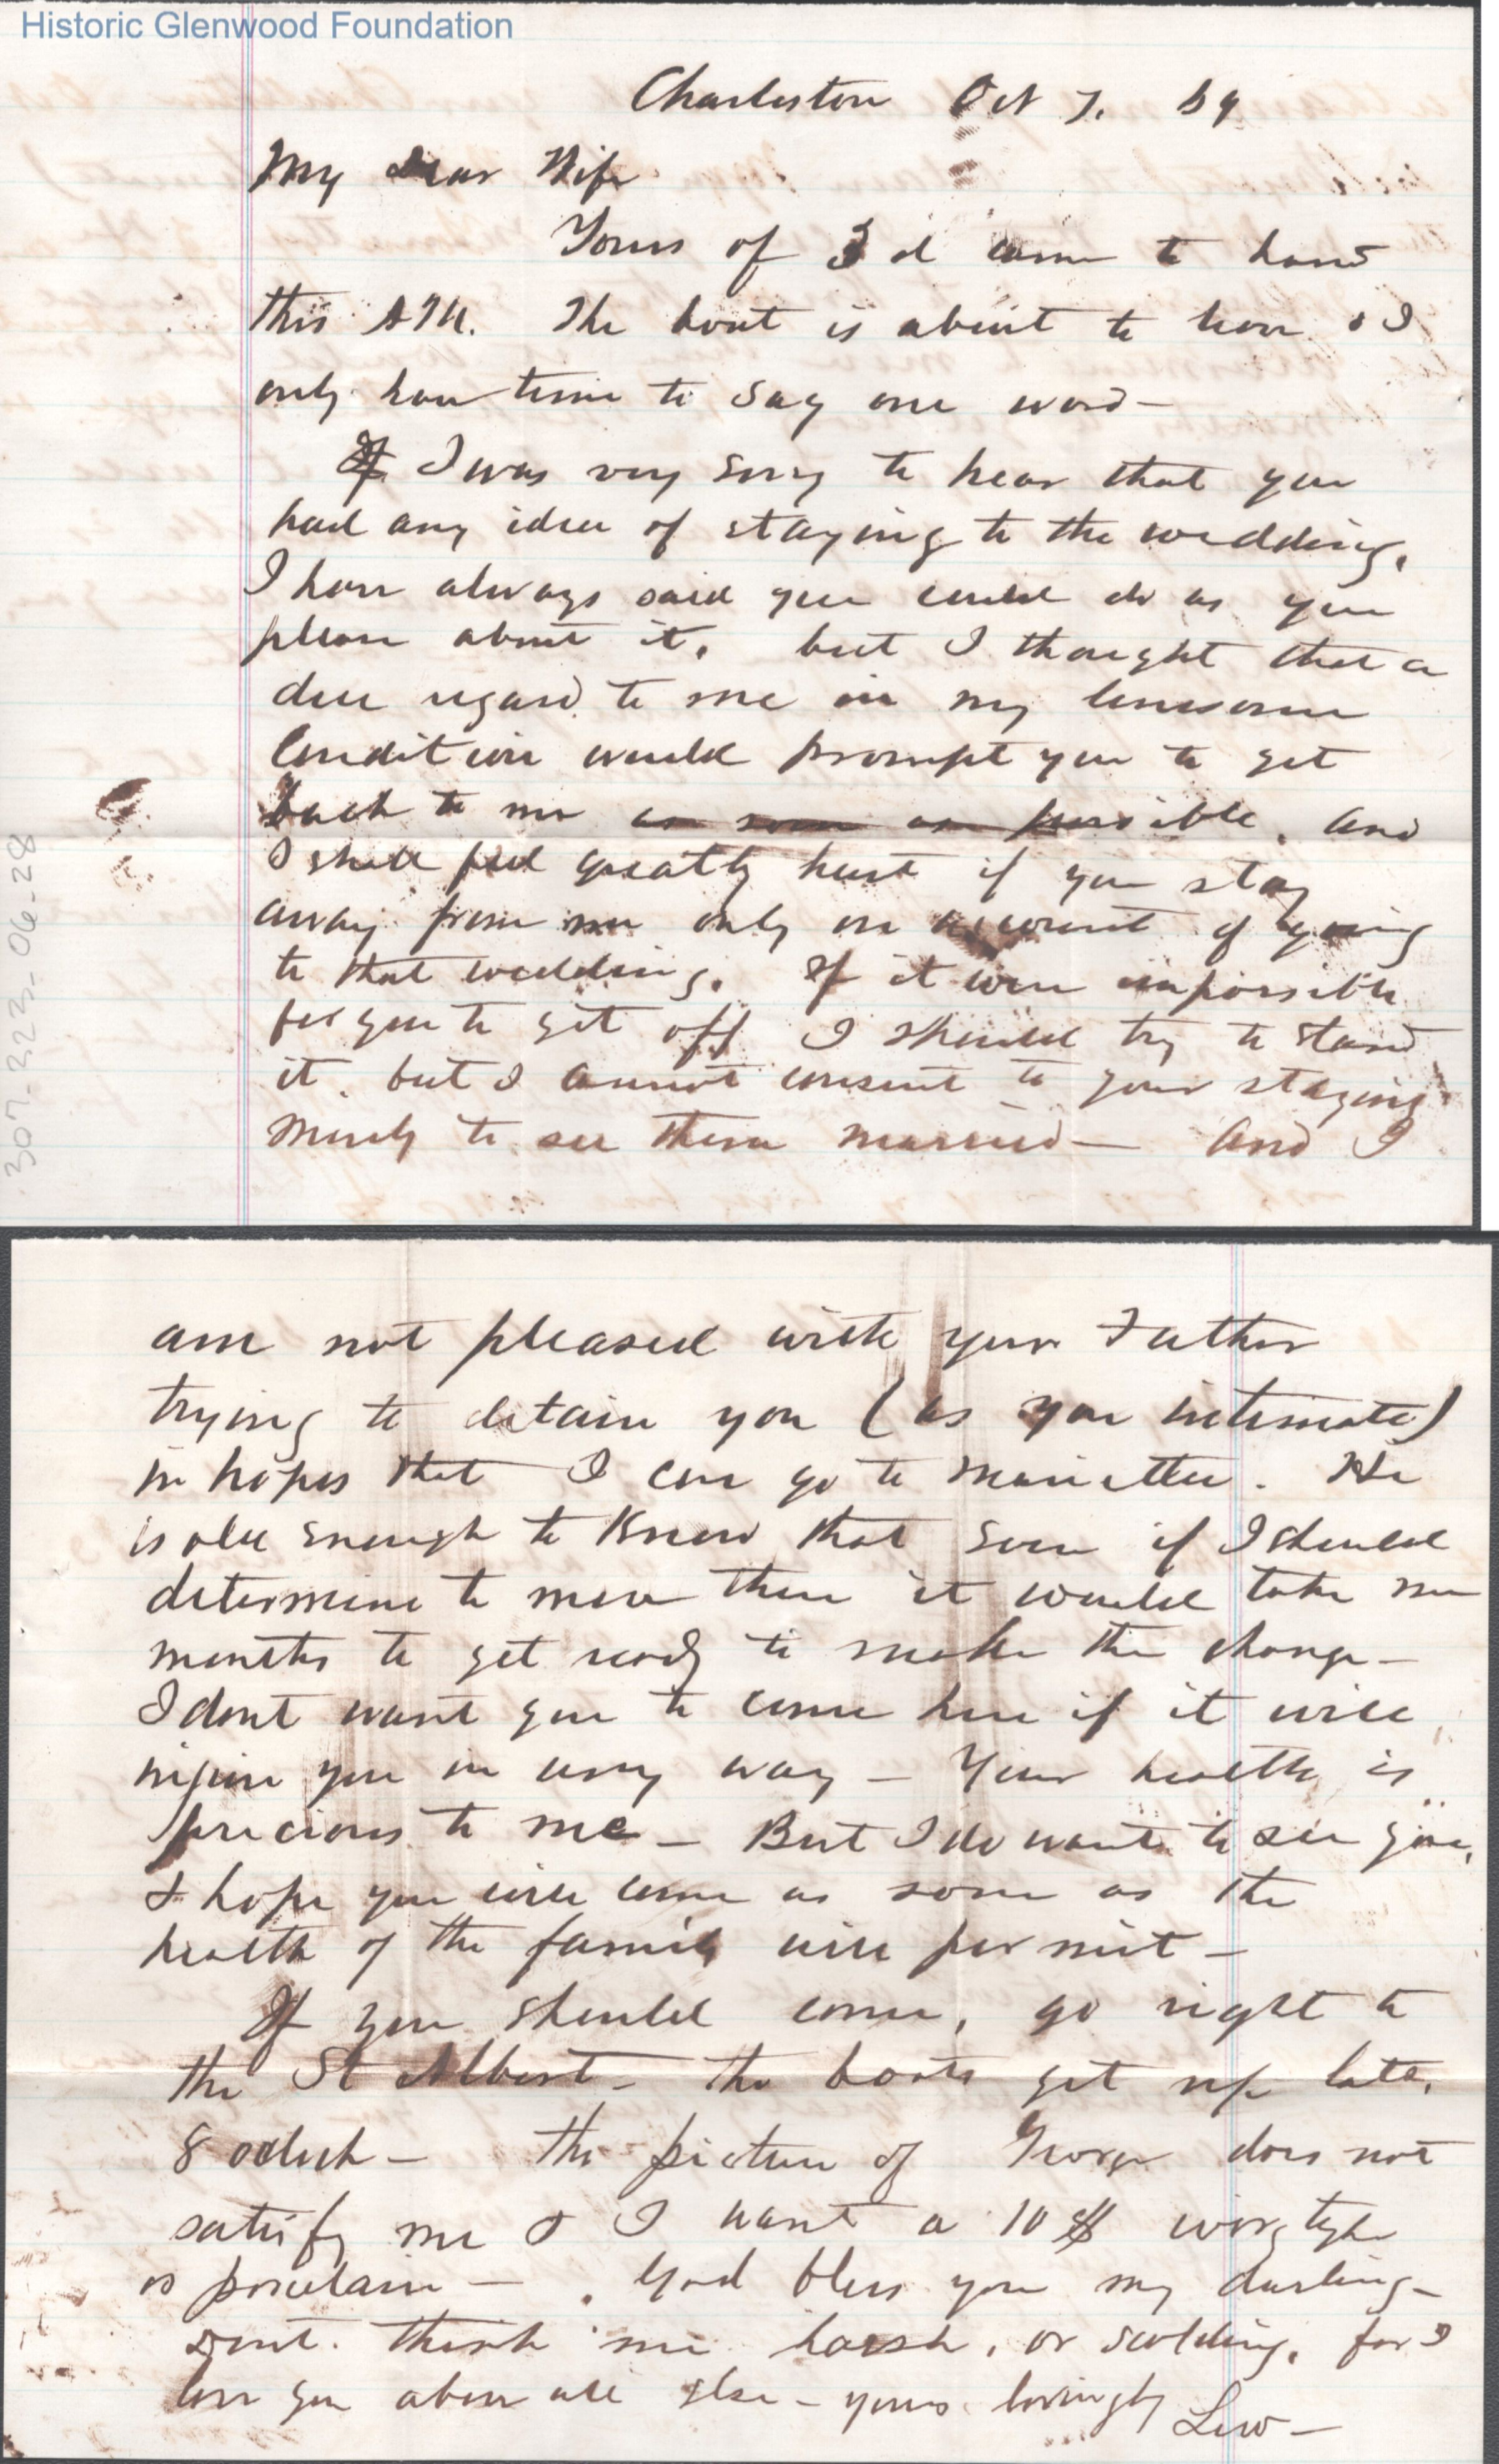 Historic Glenwood Foundation
Charleston Oct 7. 69
My Dear Wife
Yours of 3d came to hand
this AM. The boat is about to leave & I
only have time to say one word—
If I was very sorry to hear that you
had any idea of staying to the wedding.
I have always said you could do as you
please about it, but I thought that a
due regard to me in my lonesome
Condition would prompt you to get
back to me as soon as possible. and
I shall feel greatly hurt if you stay
away from me only on account of going
to that wedding. If it were impossible
for you to get off I should try to stand
it. but I cannot consent to your staying
merely to see them married— And I
307.223.06.28
am not pleased with your Father
trying to detain you (as you intimate)
in hopes that I can go to Marietta. He
is old enough to Know that even if I should
determine to move there it would take me
months to get ready to make the change—
I dont want you to come here if it will
injure you in any way— Your health is
precious to me— But I do want to see you,
& hope you will come as soon as the
health of the family will permit—
If you should come, go right to
the St Albert— the boats get up late.
8 oclock— the picture of George does not
satisfy me & I want a 10$
or porcelain— God bless you my darling—
Dont think me harsh, or scolding, for I
love you above all else— yours lovingly
Lew—